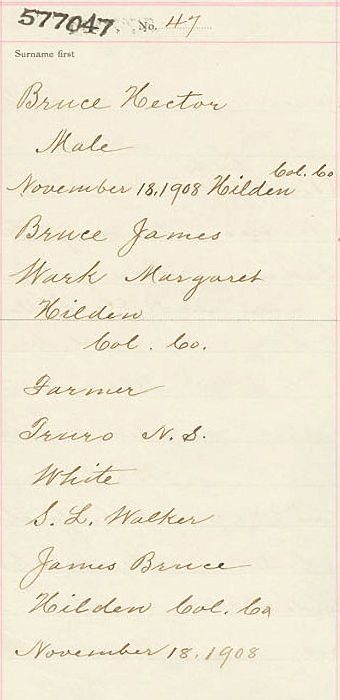 577047. No. 47
Surname first
Bruce Hector
Male
Col. Co
November 18, 1908 Hilden
Bruce James
Wark Margaret
Hilden
Col. Co.
Farmer
Truro N.S.
White
S. L. Walker
James Bruce
Hilden Col. Co
November 18, 1908